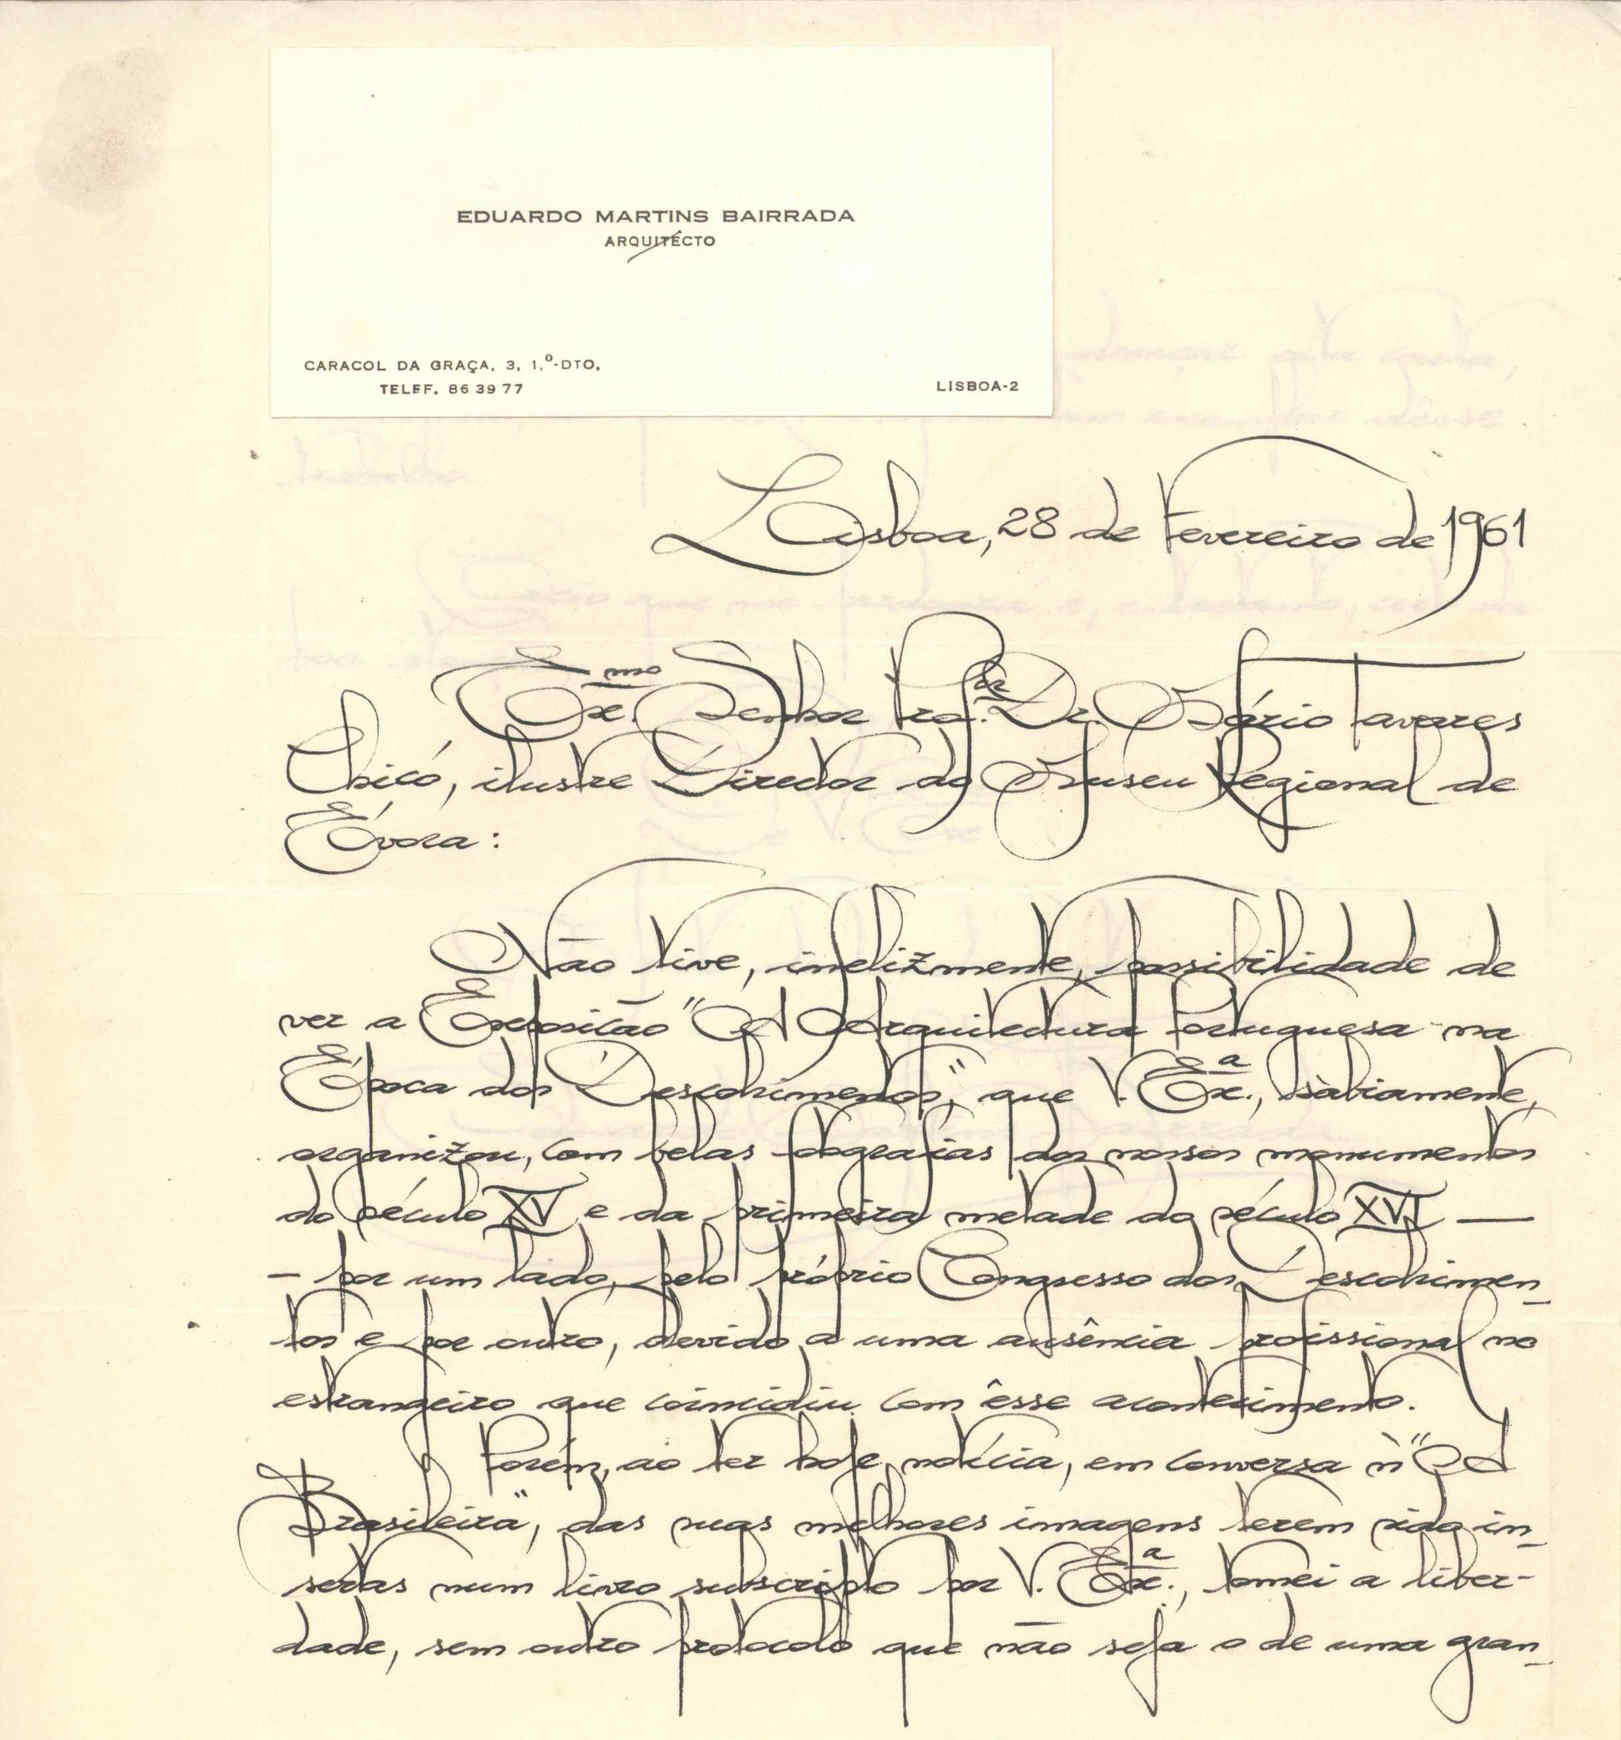 EDUARDO MARTINS BAIRRADA
ARQUITÉCTO
CARACOL DA GRAÇA, 3, 1.º-DTO,
TELEF. 86 39 77
LISBOA-2
Lisboa, 28 de Fevereiro de 1961
Ex.mo Senhor Prof.or Dr. Mário Tavares
Chicó, ilustre Director do Museu Regional de
Évora:
Não tive, infelizmente, possibilidade de
ver a Exposição "A Arquitectura Portuguesa na
Época dos Descobrimentos", que V. Ex.a, sàbiamente,
organizou, com belas fotografias dos nossos monumentos
do século XV e da primeira metade do século XVI —
— por um lado, pelo próprio Congresso dos Descobrimen-
tos e por outro, devido a uma ausência profissional no
estrangeiro que coincidiu com êsse acontecimento.
Porém, ao ter hoje, notícia, em conversa n'"A
Brasileira", das suas melhores imagens terem sido in-
sertas num livro subscripto por V. Ex.a, tomei a liber-
dade, sem outro protocolo que não seja o de uma gran-